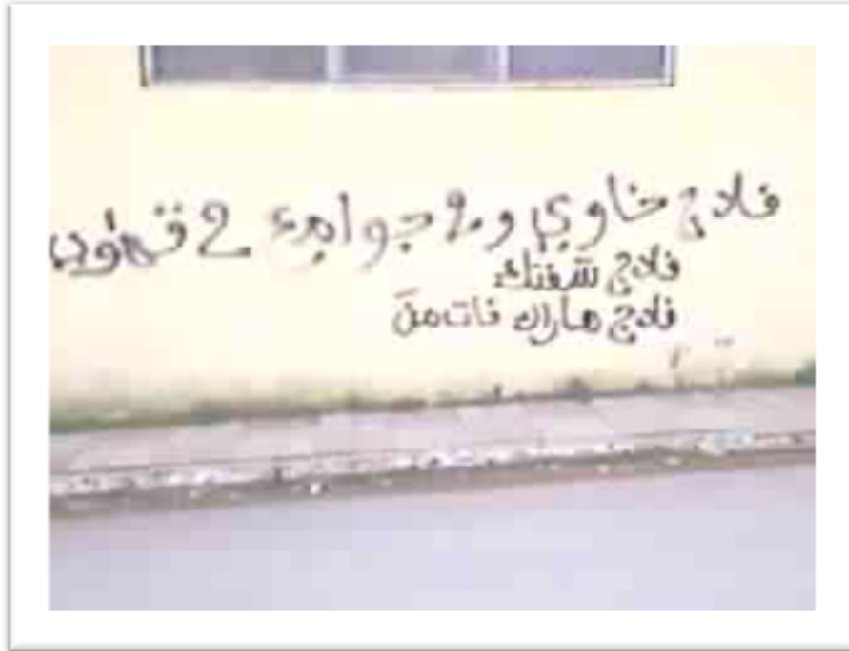 فلاج خاوي و 2 جوامع 2 قهاوي
فلاج شفتك
فلاج هارك فات من